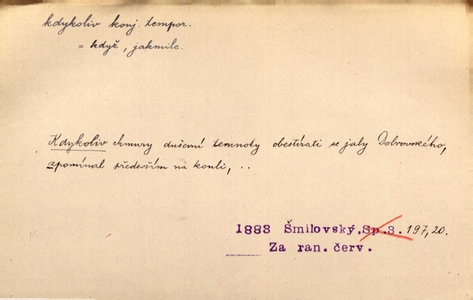 kdykoliv konj. tempor.
= když, jakmile.
Kdykoliv chmury duševní temnoty obestírati se jaly Dobrovského,
zpomínal především na kouli, ..
1883 Šmilovský. Sp. 3. 197, 20.
Za ran. červ.